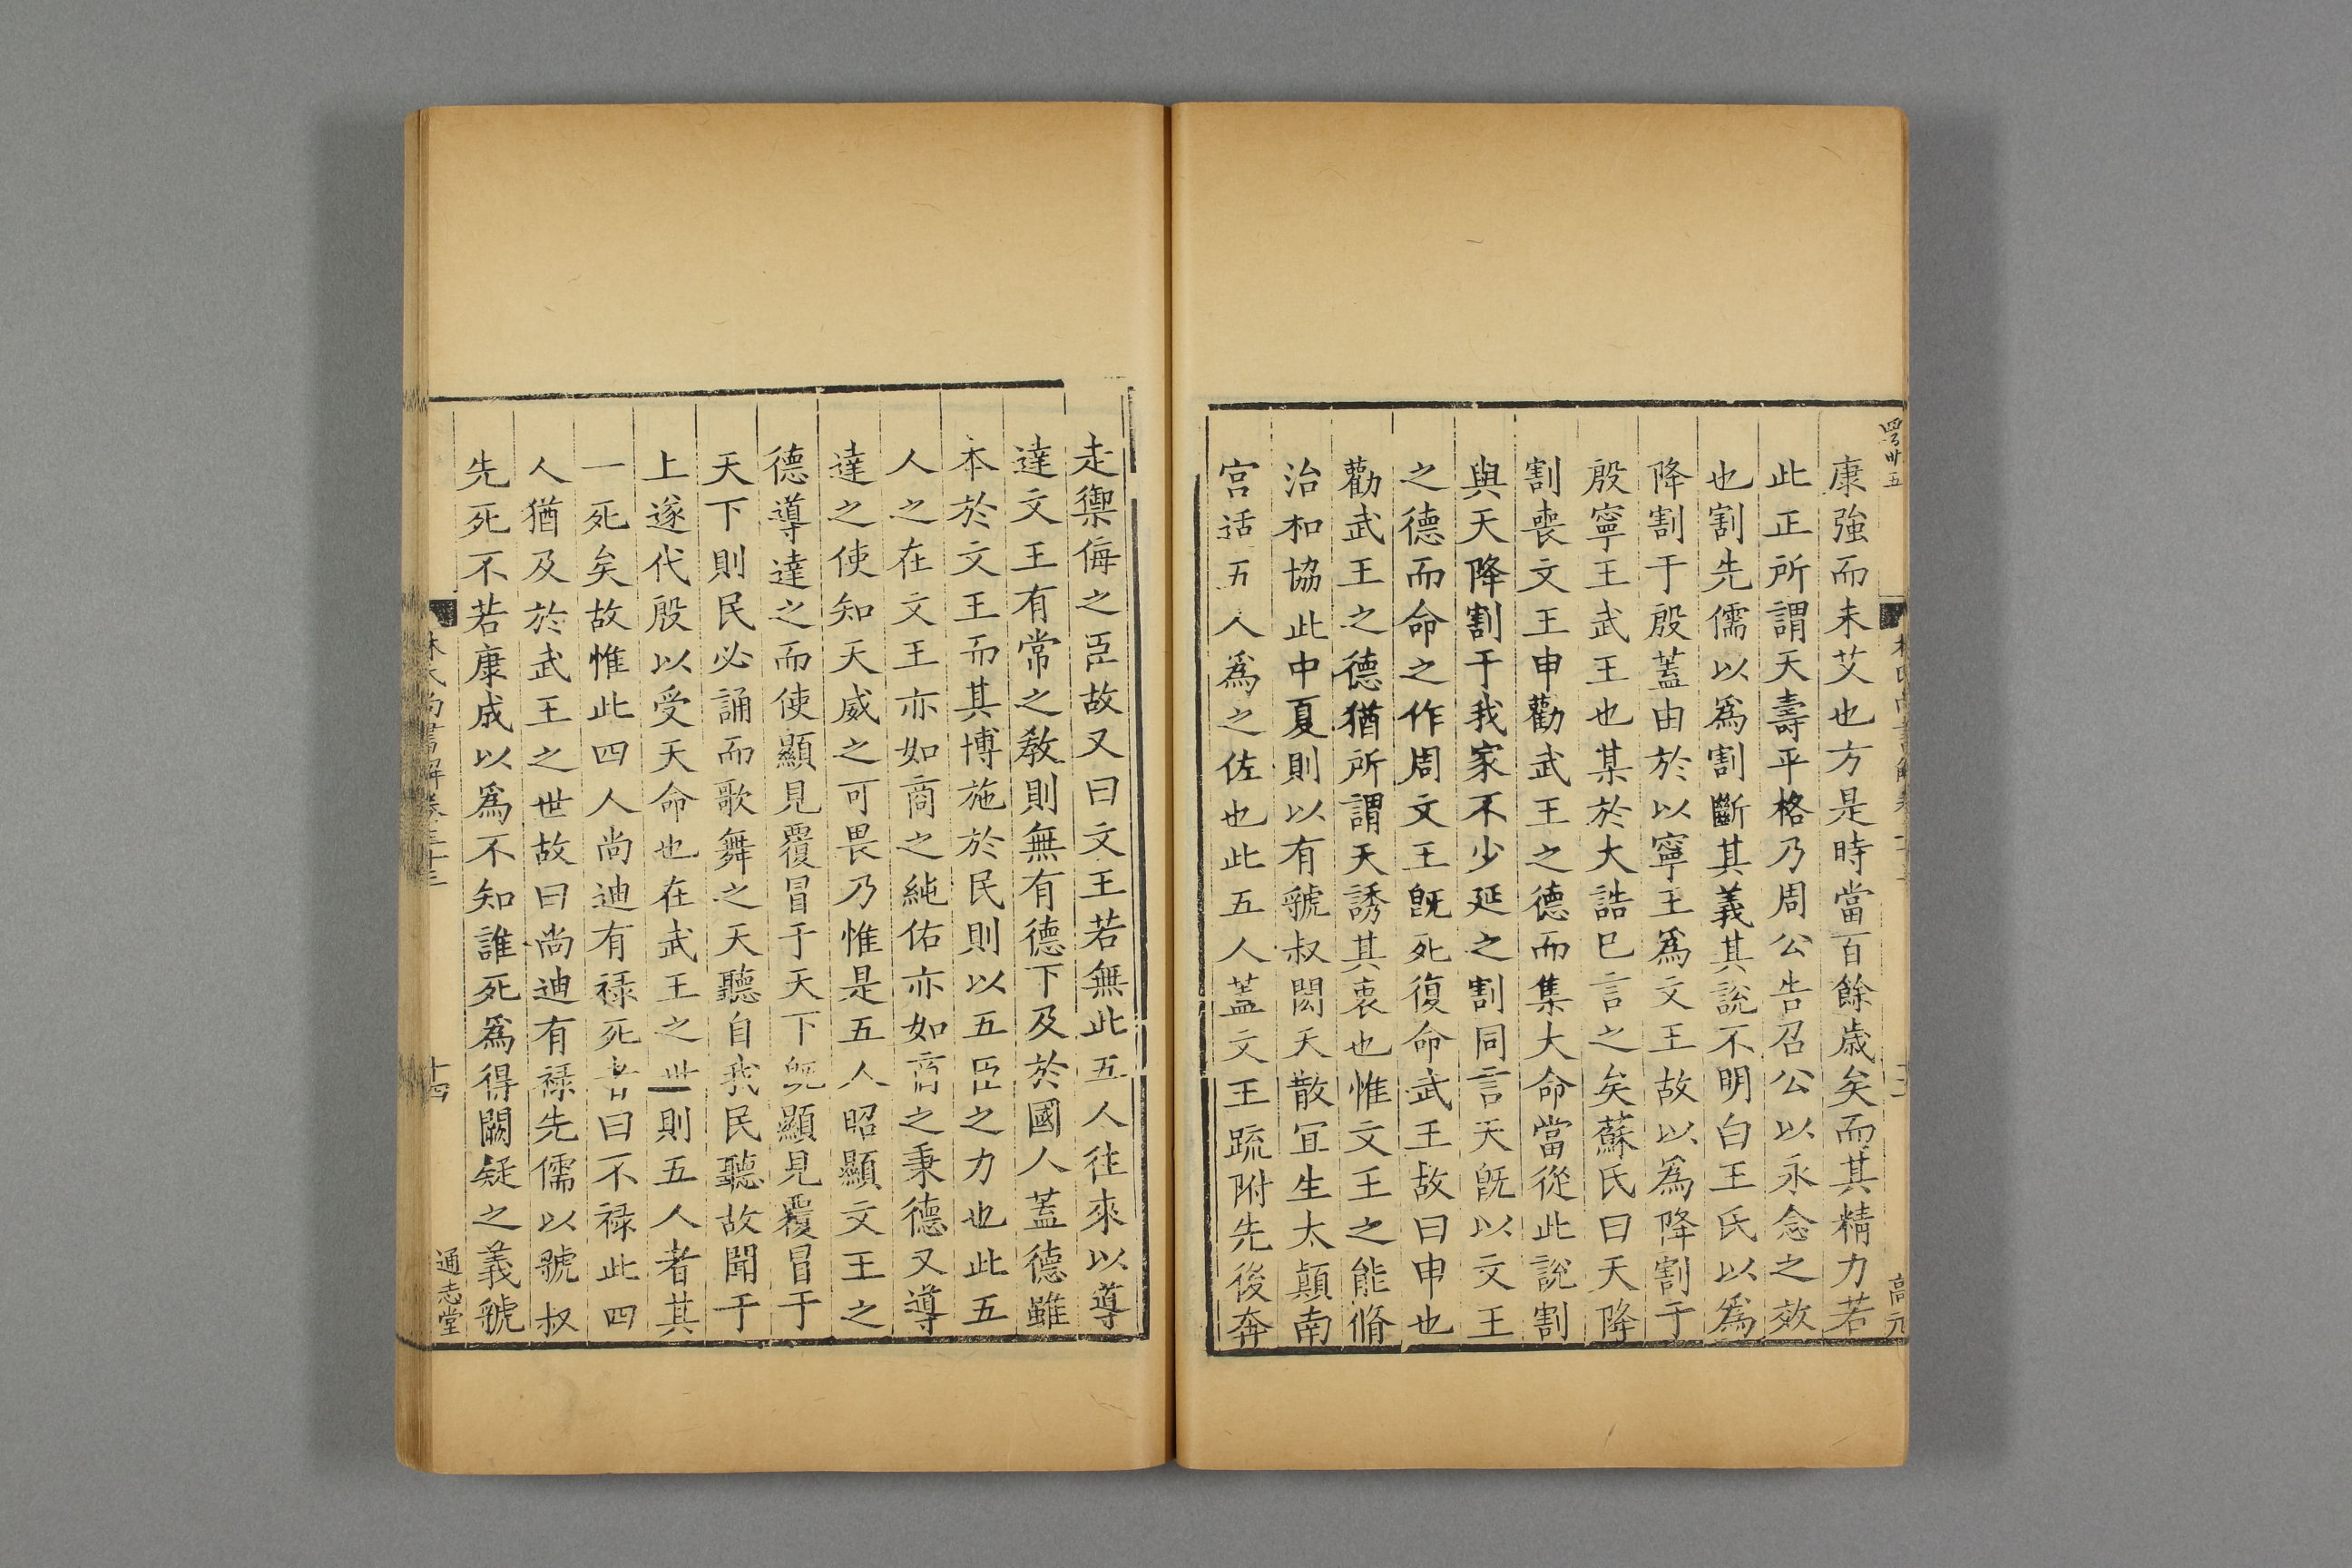 康強而未艾也方是時當百餘歳矣而其精力若
此正所謂天壽平格乃周公告召公以永念之效
也割先儒以爲割斷其義其說不明白王氏以爲
降割于殷蓋由於以寧王爲文王故以爲降割于
殷寧王武王也某於大誥巳言之矣蘇氏曰天降
割喪文王申勸武王之德而集大命當從此說割
與天降割于我家不少延之割同言天旣以文王
之德而命之作周文王旣死復命武王故曰申也
勸武王之德猶所謂天誘其衷也惟文王之能脩
治和協此中夏則以有虢叔閎夭散宜生太顛南
宮适五人爲之佐也此五人蓋文王疏附先後奔
走禦侮之臣故又曰文王若無此五人往來以導
達文王有常之敎則無有德下及於國人蓋德雖
本於文王而其博施於民則以五臣之力也此五
人之在文王亦如商之純佑亦如商之秉德又導
達之使知天威之可畏乃惟是五人昭顯文王之
德導達之而使顯見覆冒于天下旣顯見覆冒于
天下則民必誦而歌舞之天聽自我民聽故聞于
上遂代殷以受天命也在武王之世則五人者其
一死矣故惟此四人尚迪有祿死者曰不祿此四
人猶及於武王之世故曰尚迪有祿先儒以虢叔
先死不若康成以爲不知誰死爲得闕疑之義虢
林氏尚書解卷三十三
十四
通志堂